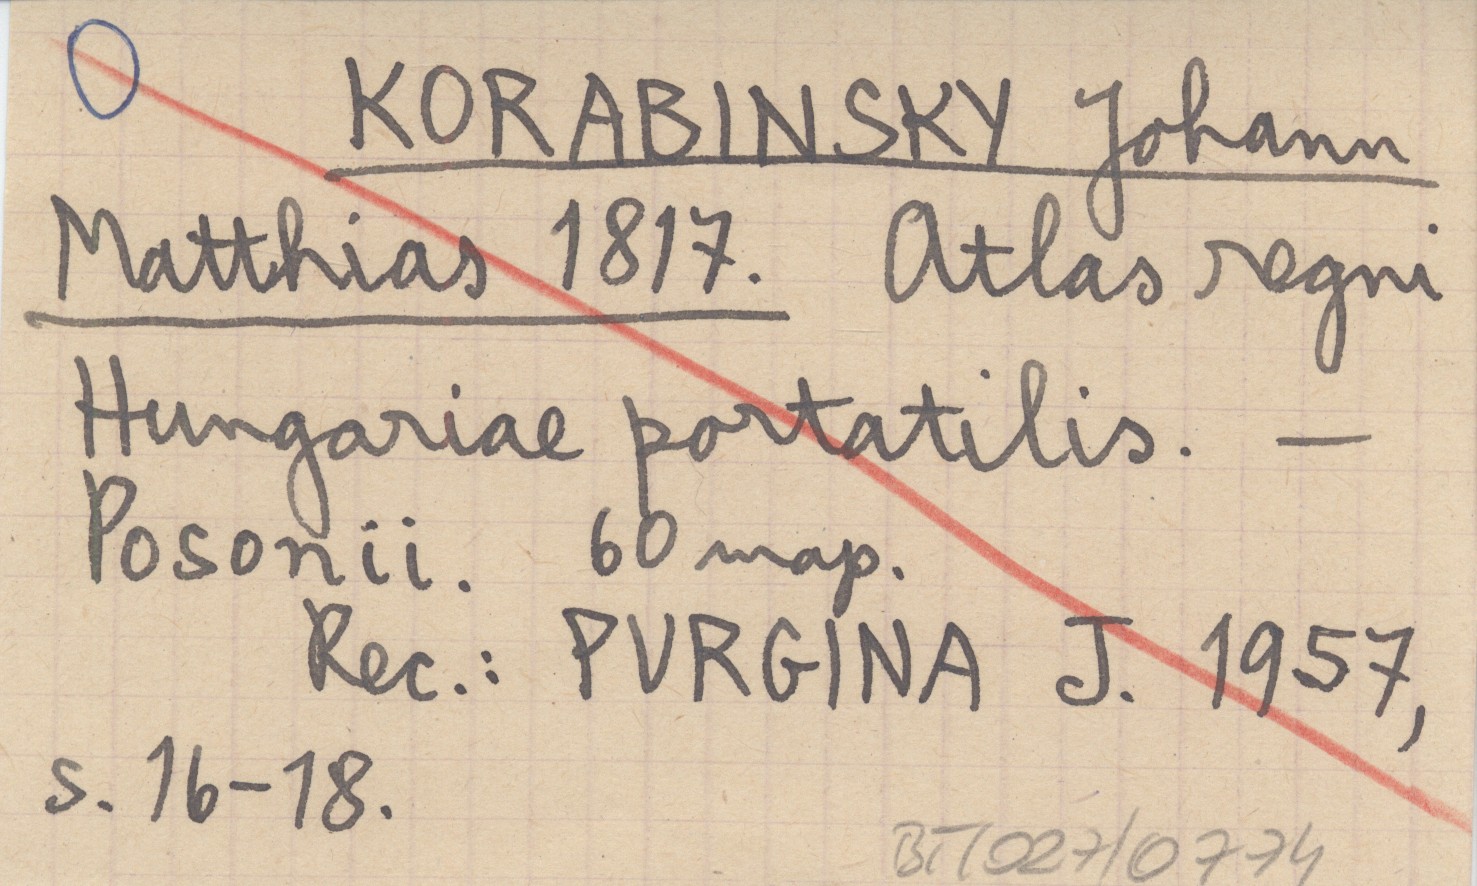 KORABINSKY Johann
Matthias 1817. Atlas regni
Hungariae portatilis. —
Posonii. 60 map.
Rec.: PURGINA J. 1957,
s. 16-18.
BT/027/0774